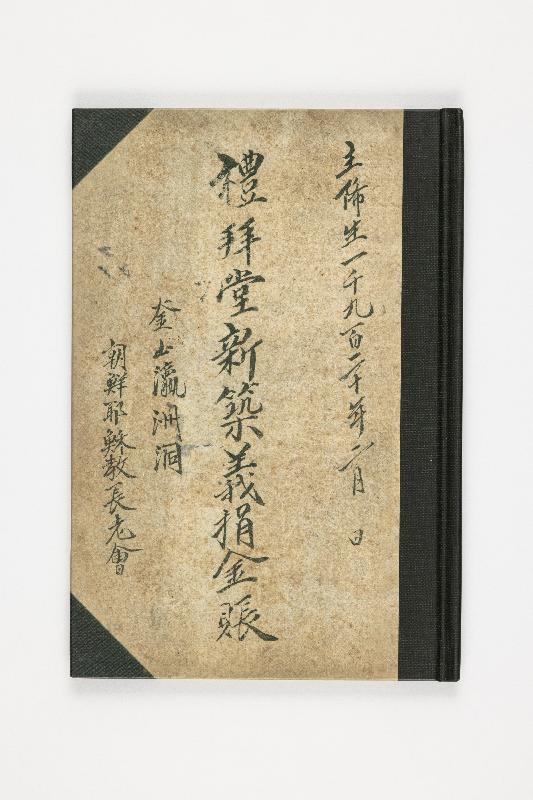 主佈生一千九百二十年二月 日
禮拜堂新築義捐金賬
釜山瀛洲洞
朝鮮耶穌敎長老會